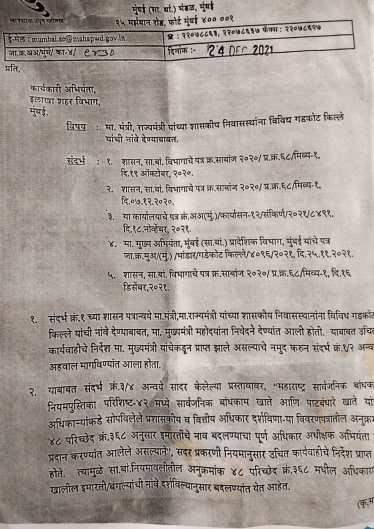 मुंबई (सा. बां.) मंडळ, मुंबई
२५ मर्झबान रोड, फोर्ट मुंबई ४०० ००१
ई-मेल : mumbai.se@mahapwd.gov.in
दिनांक :- 24 DEC 2021
प्रति,
कार्यकारी अभियंता,
इलाखा शहर विभाग,
मुंबई.
विषय : मा. मंत्री, राज्यमंत्री यांच्या शासकीय निवासस्थांना विविध गडकोट किल्ले
यांची नांवे देण्याबाबत.
संदर्भ : १. शासन, सा.बां. विभागाचे पत्र क्र.साबांज २०२०/ प्र.क्र.६८/मिव्य-१,
दि.१९ ऑक्टोबर, २०२०.
२. शासन, सा.बां. विभागाचे पत्र क्र.साबांज २०२०/ प्र.क्र.६८/मिव्य-१,
दि.०७.१२.२०२०.
३. या कार्यालयाचे पत्र क्रं.अअ(मुं.)/कार्यासन-१२/संकिर्ण/२०२१/८४९१.
दि.१८.नोव्हेंबर, २०२१.
४. मा. मुख्य अभियंता, मुंबई (सा.बां.) प्रादेशिक विभाग, मुंबई यांचे पत्र
जा.क्र.मुअ(मुं.) /भांडार/गडेकोट किल्ले/४०९६/२०२१, दि.२५.११.२०२१.
५. शासन, सा.बां. विभागाचे पत्र क्र.साबांज २०२०/ प्र.क्र.६८/मिव्य-१, दि.१६
डिसेंबर,२०२१.
१. संदर्भ क्रं.१ च्या शासन पत्रान्वये मा.मंत्री,मा.राज्यमंत्री यांच्या शासकीय निवासस्थानांना विविध गडकोट
किल्ले यांची नांवे देण्याबाबत, मा. मुख्यमंत्री महोदयांना निवेदने देण्यांत आली होती. याबाबत उचित
कार्यवाहीचे निर्देश मा. मुख्यमंत्री यांचेकडून प्राप्त झाले असल्याचे नमुद करुन संदर्भ क्रं.१/२ अन्वये
अहवाल मागविण्यांत आला होता.
२. याबाबत संदर्भ क्रं.३/४ अन्वये सादर केलेल्या प्रस्तावावर, "महाराष्ट्र सार्वजनिक बांधकाम
नियमपुस्तिका परिशिष्ट-४२ मध्ये सार्वजनिक बांधकाम खाते आणि पाटबंधारे खाते यां
अधिकाऱ्यांकडे सोपविलेले प्रशासकीय व वित्तीय अधिकार दर्शविणा-या विवरणपत्रातील अनुक्रम
४८ परिच्छेद क्रं.३६८ अनुसार इमारतीचे नाव बदलण्याचा पूर्ण अधिकार अधीक्षक अभियंता
प्रदान करण्यांत आलेले असल्याने", सदर प्रकरणी नियमानुसार उचित कार्यवाहीचे निर्देश प्राप्त
होते. त्यामुळे सा.बां.नियमावलीतील अनुक्रमांक ४८ परिच्छेद क्रं.३६८ मधील अधिकारा
खालील इमारतों/बंगल्यांची नांवे दर्शविल्यानुसार बदलण्यांत येत आहेत.